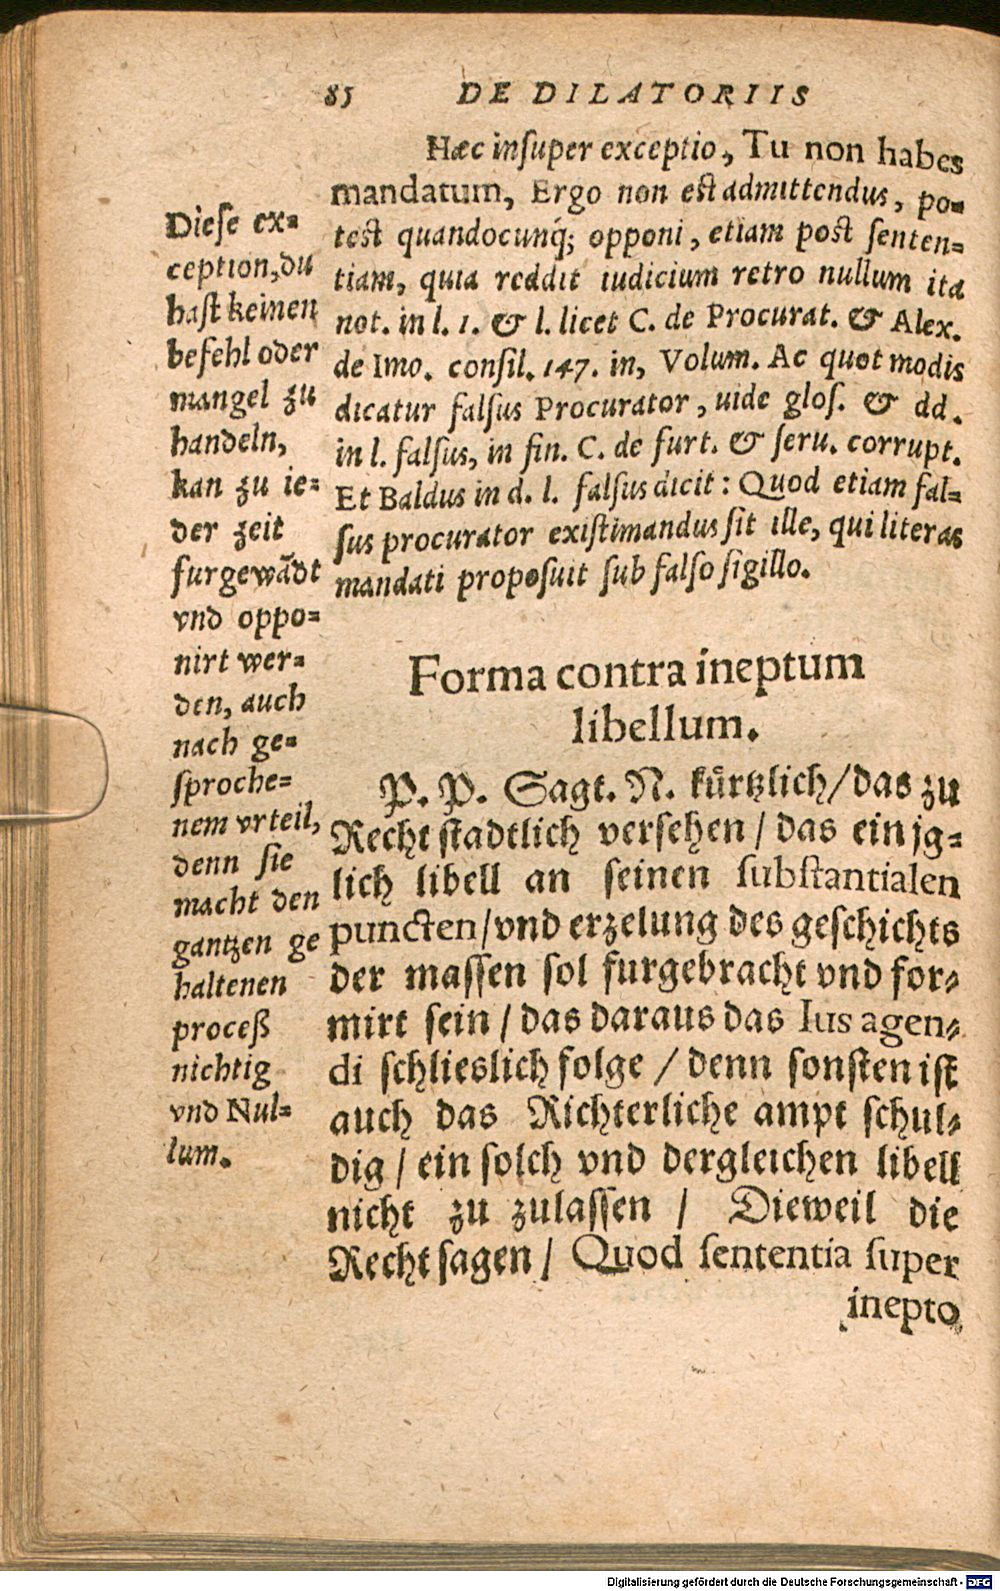 85 DE DILATORIIS
Hæc inſuper exceptio, Tu non habes
mandatum, Ergo non eſt admittendus, po⸗
teſt quandocunq́; opponi, etiam poſt ſenten⸗
tiam, quia reddit iudicium retro nullum ita
not. in l. 1. & l. licet C. de Procurat. & Alex.
de Imo. conſil. 147. in, Volum. Ac quot modis
dicatur falſus Procurator, uide gloſ. & dd.
in l. falſus, in fin. C. de furt. & ſeru. corrupt.
Et Baldus in d. l. falſus dicit: Quod etiam fal⸗
ſus procurator exiſtimandus ſit ille, qui literas
mandati propoſuit ſub falſo ſigillo.
Dieſe ex⸗
ception, du
haſt keinen
befehl oder
mangel zu
handeln,
kan zu ie⸗
der zeit
furgewãdt
vnd oppo⸗
nirt wer⸗
den, auch
nach ge⸗
ſproche⸗
nem vrteil,
denn ſie
macht den
gantzen ge
haltenen
proceß
nichtig
vnd Nul⸗
lum.
Forma contra ineptum
libellum.
P. P. Sagt. N. kürtzlich/das zu
Recht ſtadtlich verſehen / das ein jg⸗
lich libell an ſeinen ſubſtantialen
puncten/vnd erzelung des geſchichts
der maſſen ſol furgebracht vnd for⸗
mirt ſein / das daraus das Ius agen⸗
di ſchlieslich folge / denn ſonſten iſt
auch das Richterliche ampt ſchul⸗
dig / ein ſolch vnd dergleichen libell
nicht zu zulaſſen / Dieweil die
Recht ſagen / Quod ſententia ſuper
inepto
Digitalisierung gefördert durch die Deutsche Forschungsgemeinschaft - DFG